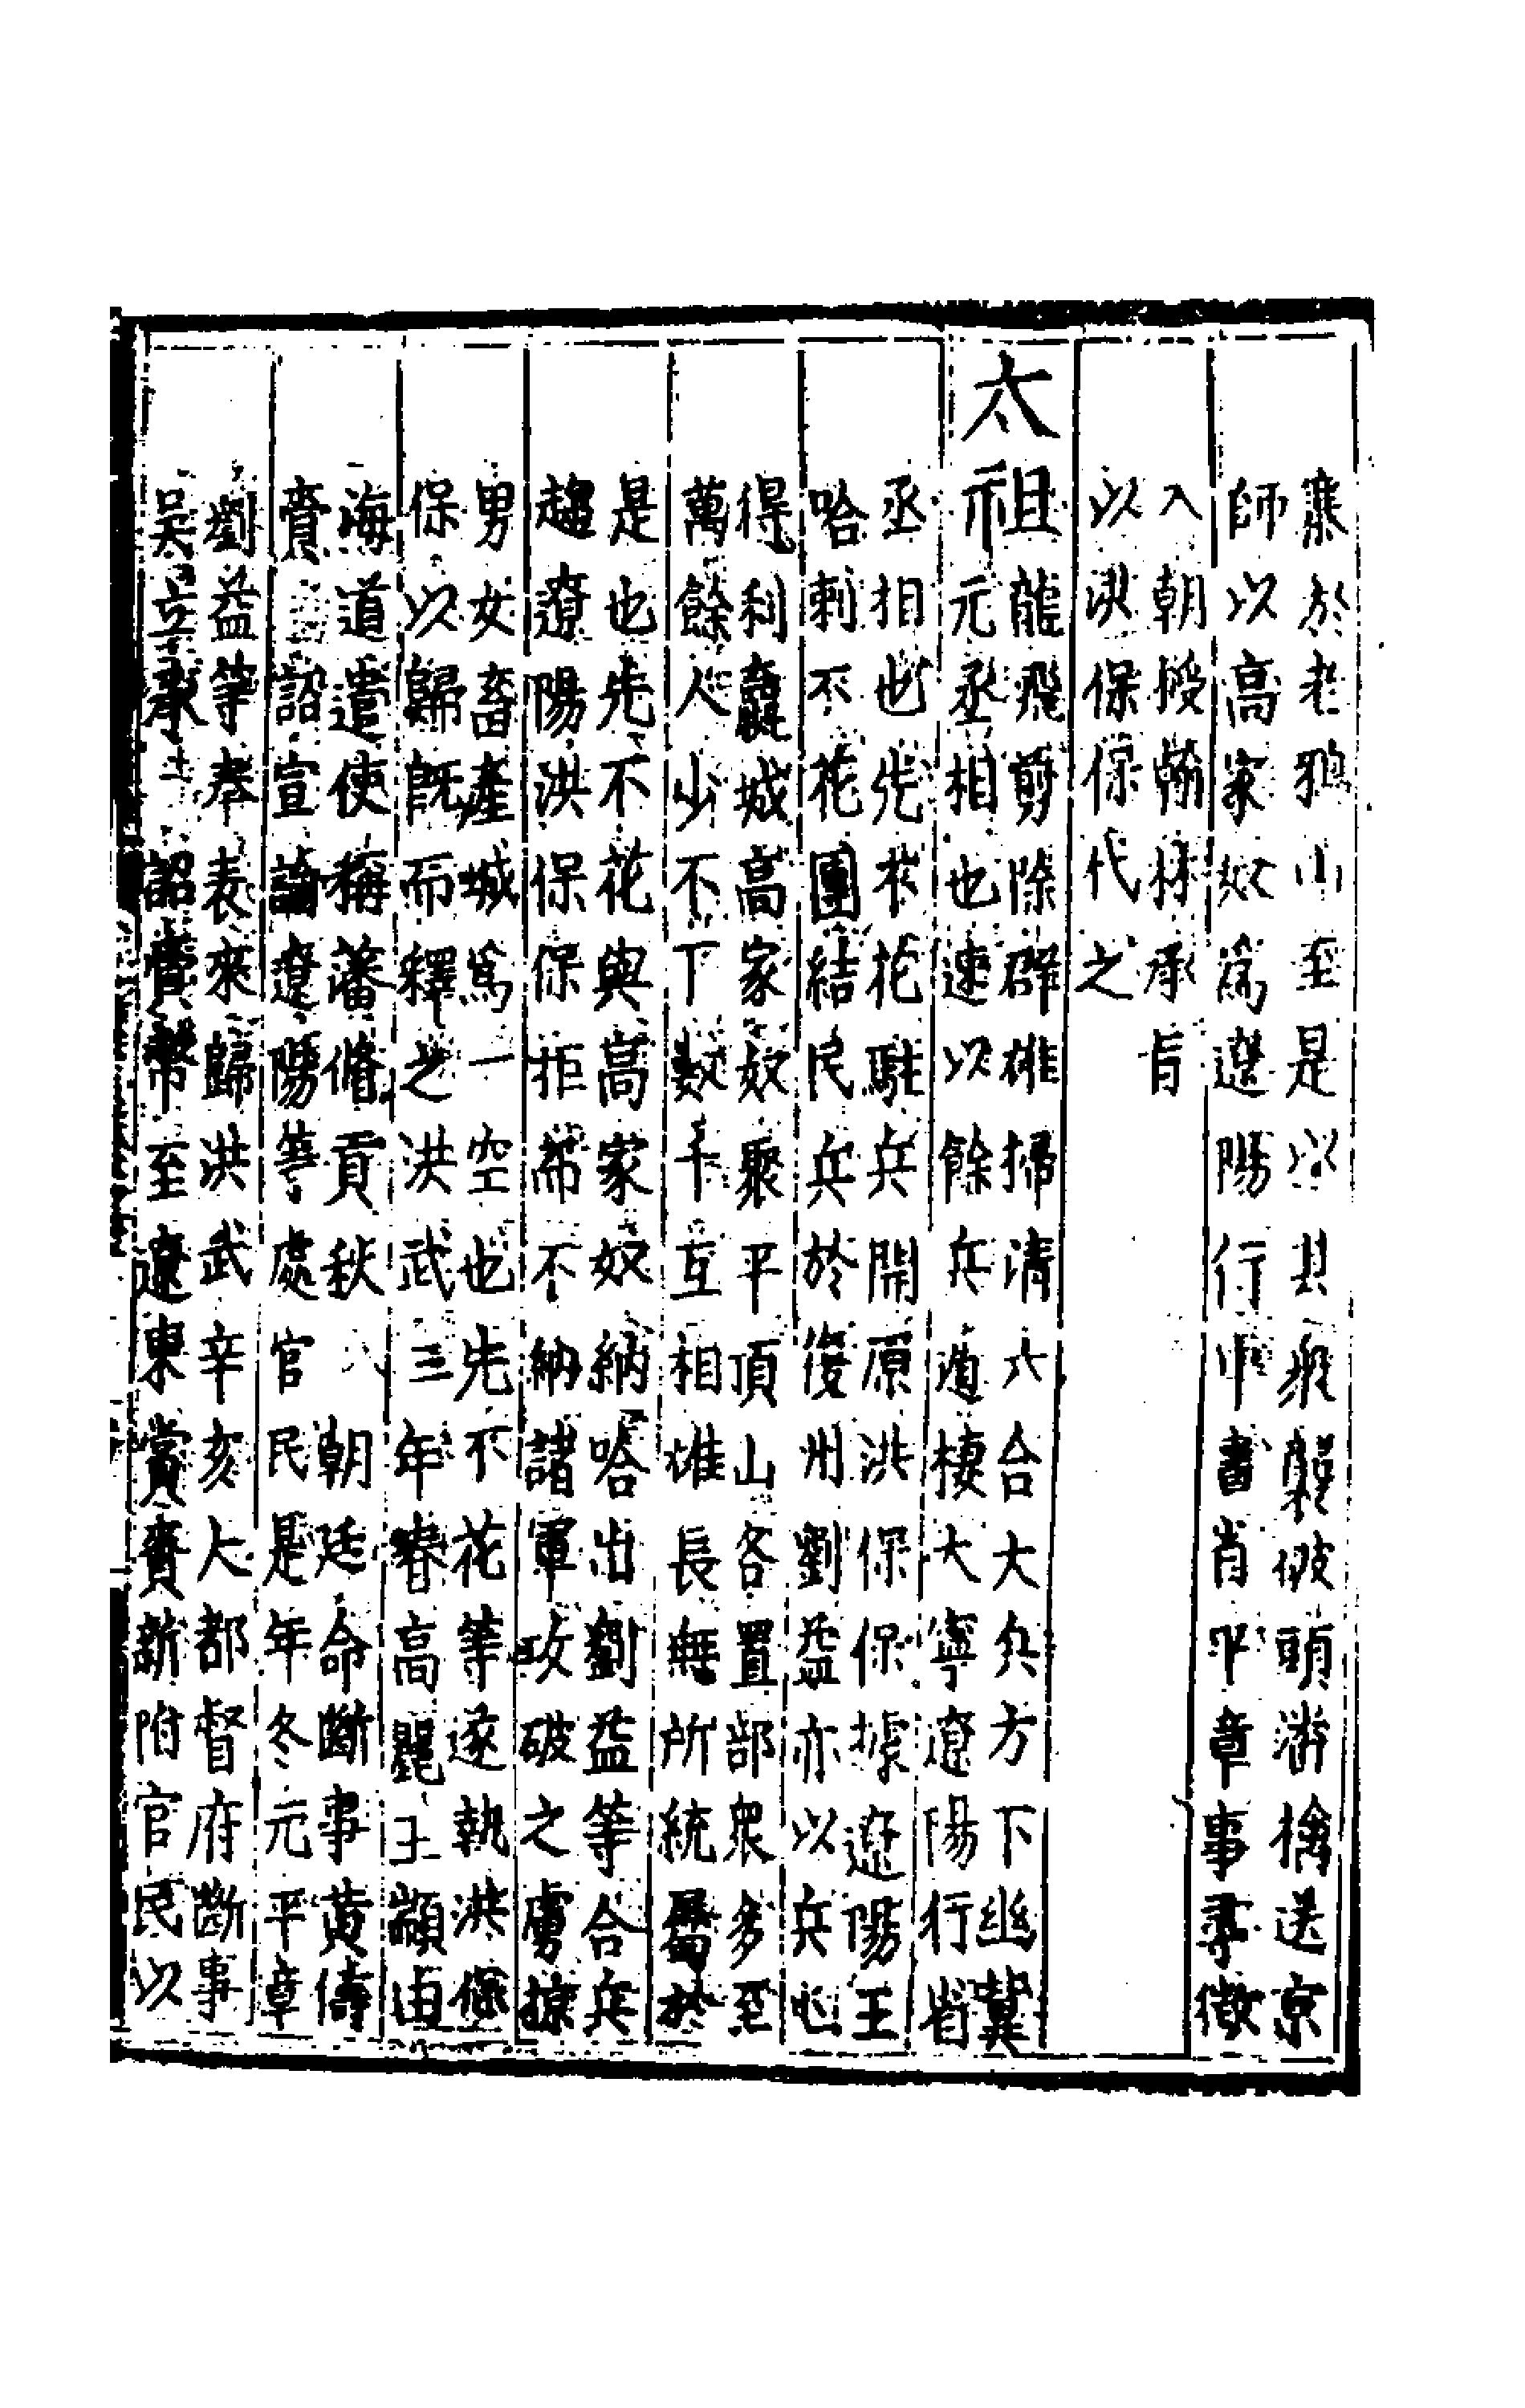 寨於老鴉山至是以其衆襲破頭潾擒送京
師以高家奴爲遼陽行中書省平章事尋徴
入朝授翰林承旨
以洪保保代之
太祖龍飛剪除群雄掃清六合大兵方下幽冀
元丞相也速以餘兵遁棲大寧遼陽行省
丞相也先不花駐兵開原洪保保據遼陽王
哈剌不花團結民兵於復州劉益亦以兵屯
得利嬴城高家奴聚平頂山各置部衆多至
萬餘人少不下數千互相雄長無所統屬於
是也先不花與高家奴納哈出劉益等合兵
趨遼陽洪保保拒而不納諸軍攻破之虜掠
男女畜產城爲一空也先不花等遂執洪保
保以歸旣而釋之洪武三年春高麗王顓由
海道遣使稱藩脩貢秋八朝廷命斷事黃儔
賫詔宣諭遼陽等處官民是年冬元平章
劉益等奉表來歸洪武辛亥大都督府斷事
吳立承詔賫幣至遼東賞賚新附官民以